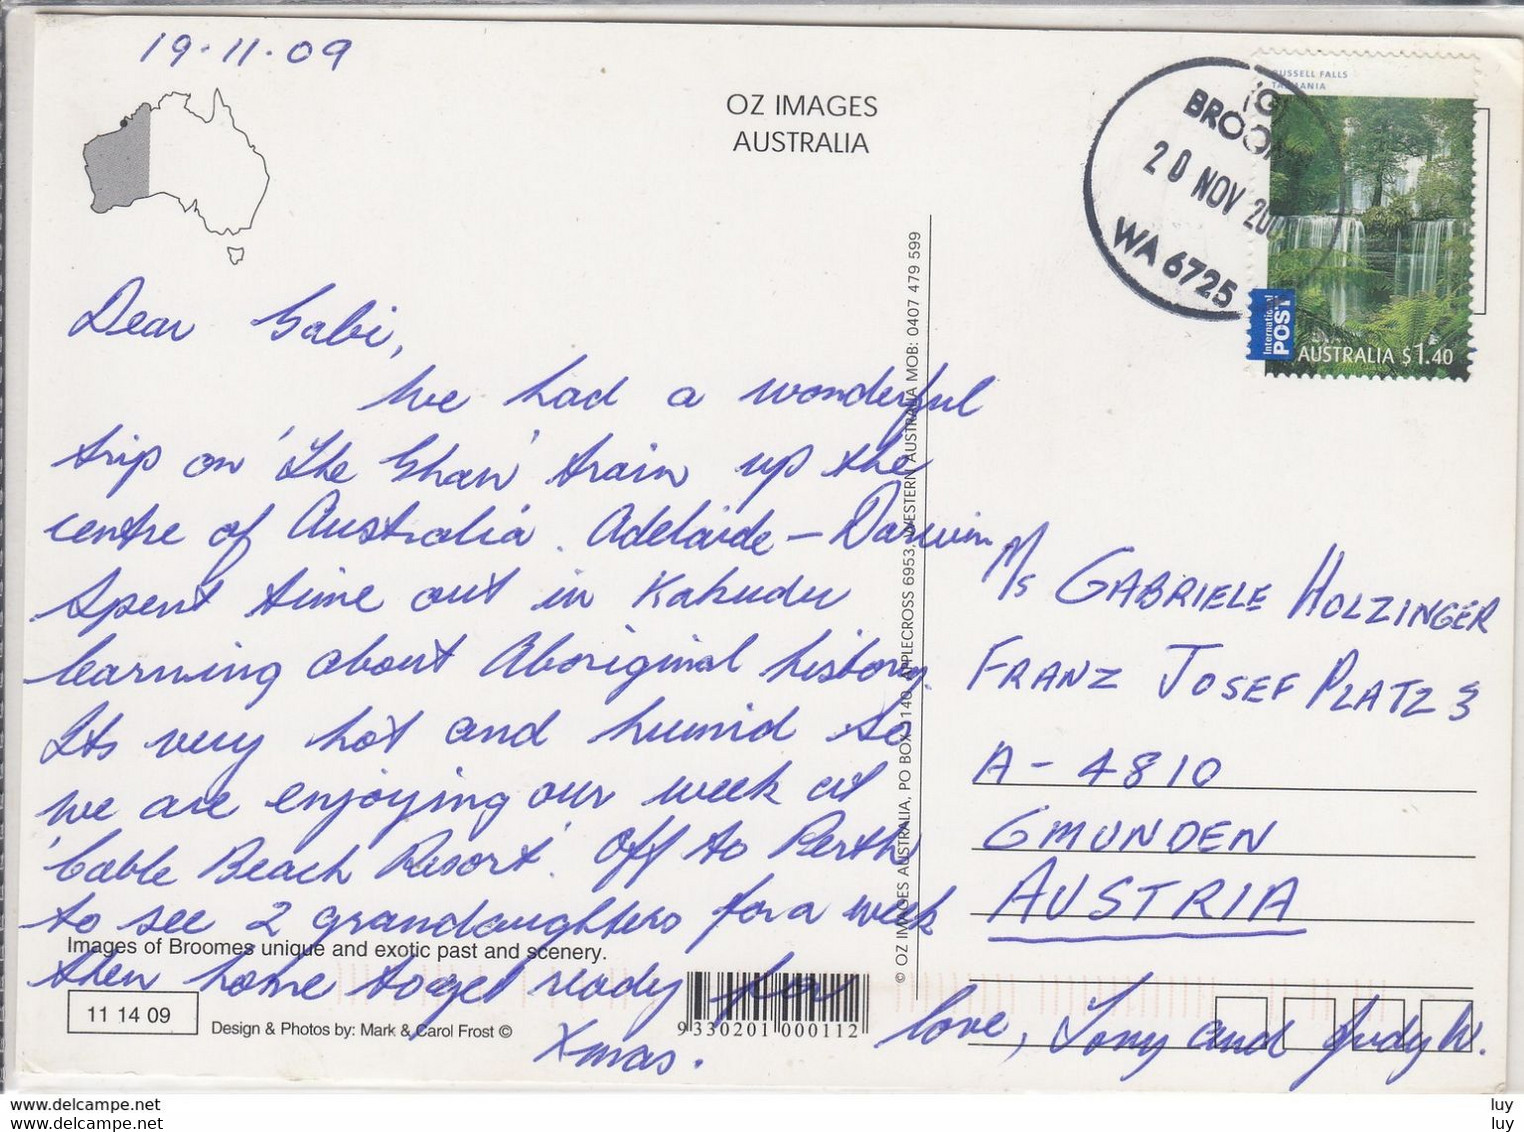 19.11.09
OZ IMAGES
AUSTRALIA
RUSSELL FALLS
TASMANIA
BROOM
20 NOV 200
WA 6725
International
POST
AUSTRALIA $1.40
Dear Gabi,
We had a wonderful
trip on 'The Ghan' train up the
centre of Australia. Adelaide – Darwin
Spent time out in Kakudu
learning about Aboriginal history.
Its very hot and humid so
we are enjoying our week at
'Cable Beach Resort'. Off to Perth
to see 2 grandaughters for a week
then home to get ready for
Xmas.
Love, Tony and Judy W.
M/s GABRIELE HOLZINGER
FRANZ JOSEF PLATZ 3
A - 4810
GMUNDEN
AUSTRIA
© OZ IMAGES AUSTRALIA, PO BOX 1140, APPLECROSS 6953, WESTERN AUSTRALIA MOB: 0407 479 599
Images of Broomes unique and exotic past and scenery.
11 14 09
Design & Photos by: Mark & Carol Frost ©
9 330201 000112
www.delcampe.net
www.delcampe.net
luy
luy